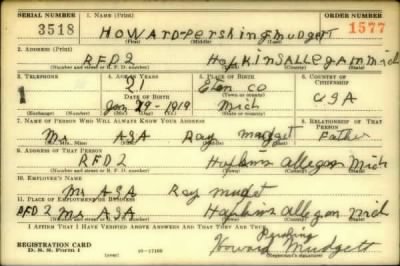 SERIAL NUMBER 1. NAME (Print) ORDER NUMBER
3518 HOWARD Pershing Mudgett 1577
(First) (Middle) (Last)
2. ADDRESS (Print)
RFD 2 Hopkins Allegan Mich
(Number and street or R. F. D. number) (Town) (County) (State)
3. TELEPHONE 4. AGE IN YEARS 5. PLACE OF BIRTH 6. COUNTRY OF CITIZENSHIP
21 CO
DATE OF BIRTH (Town or county)
Jan 29-1919 Mich USA
(Exchange) (Number) (Mo.) (Day) (Yr.) (State or country)
7. NAME OF PERSON WHO WILL ALWAYS KNOW YOUR ADDRESS 8. RELATIONSHIP OF THAT PERSON
Mr ASA Ray Mudget Father
(Mr., Mrs., Miss) (First) (Middle) (Last)
9. ADDRESS OF THAT PERSON
RFD 2 Hopkins allegan Mich
(Number and street or R. F. D. number) (Town) (County) (State)
10. EMPLOYER'S NAME
Mr ASA Ray mudet
11. PLACE OF EMPLOYMENT OR BUSINESS
RFD 2 Mr ASA Hopkins allegan Mich
(Number and street or R. F. D. number) (Town) (County) (State)
I AFFIRM THAT I HAVE VERIFIED ABOVE ANSWERS AND THAT THEY ARE TRUE.
REGISTRATION CARD Pershing
D. S. S. Form 1 Howard Mudgett
(Registrant's signature)